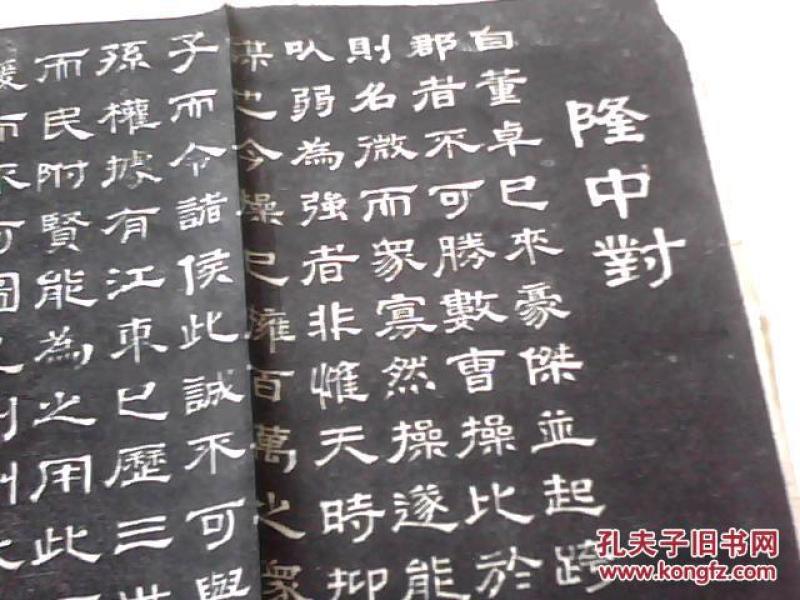 隆中對
自董卓已來豪傑並起跨
郡者不可勝數曹操比於
則名微而眾寡然操遂能
以弱為強者非惟天時抑
謀也今操已擁百萬之眾
子而令諸侯此誠不可與
孫權據有江東已歷三世
而民附賢能為之用此
援而不可圖
孔夫子旧书网
www.kongfz.com